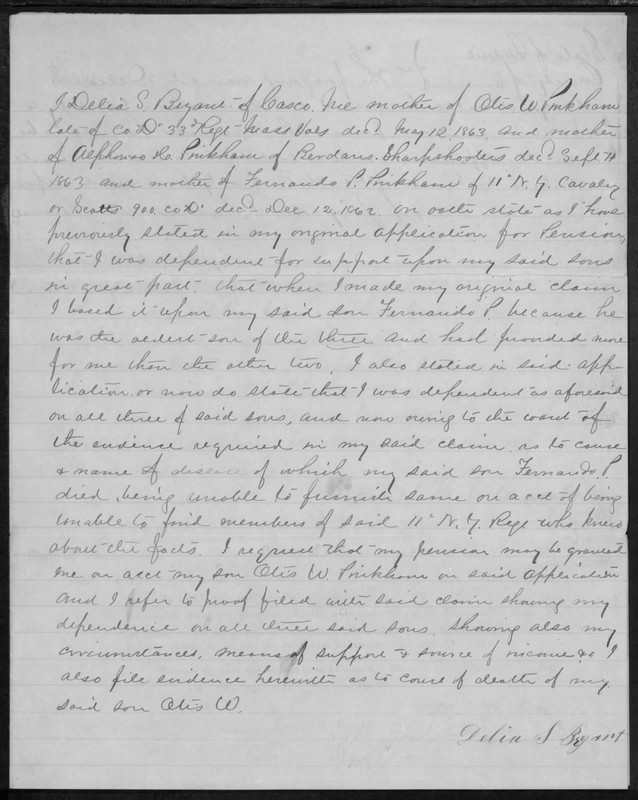 I Delia S. Bryant of Casco. Me mother of Otis W. Pinkham
late of Co D. 33d Regt Mass Vols decd May 12 1863, and mother
of Alphonso H. Pinkham of Berdans. Sharpshooters decd Sept
1863 and mother of Fernando P. Pinkham of 11" N. Y. Cavalry
or Scotts 900. Co D. decd Dec 12. 1862. on oath state as I have
previously stated in my original application for Pension,
that I was dependent for support upon my said sons
in great part. that when I made my original claim
I based it upon my said son Fernando P. because he
was the oldest son of the three and had provided more
for me than the other two, I also stated in said app-
lication. or now do state that I was dependent as aforesaid
on all three of said sons, and now owing to the want of
the evidence required in my said claim as to cause
& name of disease of which my said son Fernando P.
died, being unable to furnish same on acct of being
unable to find members of said 11" N. Y. Regt who knew
about the facts. I request that my pension may be granted
me on acct my son Otis W. Pinkham on said application
and I refer to proof filed with said claim showing my
dependence on all three said sons. showing also my
circumstances, means of support & source of income &c I
also file evidence herewith as to cause of death of my
said son Otis W.
Delia S Bryant